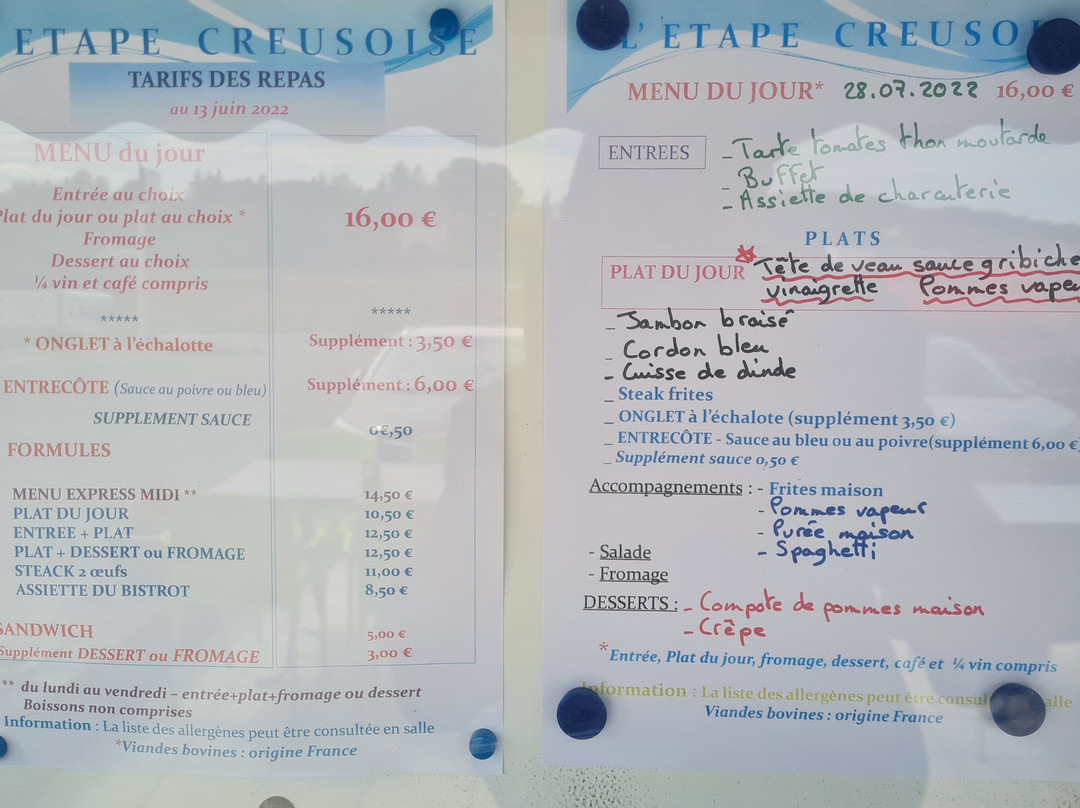 ETAPE CREUSOISE
TARIFS DES REPAS
au 13 juin 2022
MENU du jour
Entrée au choix
Plat du jour ou plat au choix *
Fromage
Dessert au choix
¼ vin et café compris
16,00 €
*****
*****
* ONGLET à l'échalotte
Supplément : 3,50 €
ENTRECÔTE (Sauce au poivre ou bleu)
Supplément : 6,00 €
SUPPLEMENT SAUCE
0€,50
FORMULES
MENU EXPRESS MIDI ** 14,50 €
PLAT DU JOUR 10,50 €
ENTREE + PLAT 12,50 €
PLAT + DESSERT ou FROMAGE 12,50 €
STEACK 2 œufs 11,00 €
ASSIETTE DU BISTROT 8,50 €
SANDWICH 5,00 €
Supplément DESSERT ou FROMAGE 3,00 €
** du lundi au vendredi – entrée+plat+fromage ou dessert
Boissons non comprises
Information : La liste des allergènes peut être consultée en salle
*Viandes bovines : origine France
L'ETAPE CREUSO
MENU DU JOUR* 28.07.2022 16,00 €
ENTREES
- Tarte tomates thon moutarde
- Buffet
- Assiette de charcuterie
PLATS
PLAT DU JOUR * Tête de veau sauce gribiche
vinaigrette Pommes vapeu
_ Jambon braisé
_ Cordon bleu
- Cuisse de dinde
_ Steak frites
_ ONGLET à l'échalote (supplément 3,50 €)
_ ENTRECÔTE - Sauce au bleu ou au poivre(supplément 6,00 €
_ Supplément sauce 0,50 €
Accompagnements : - Frites maison
- Pommes vapeur
- Purée maison
- Spaghetti
- Salade
- Fromage
DESSERTS : - Compote de pommes maison
- Crêpe
*Entrée, Plat du jour, fromage, dessert, café et ¼ vin compris
Information : La liste des allergènes peut être consul alle
Viandes bovines : origine France